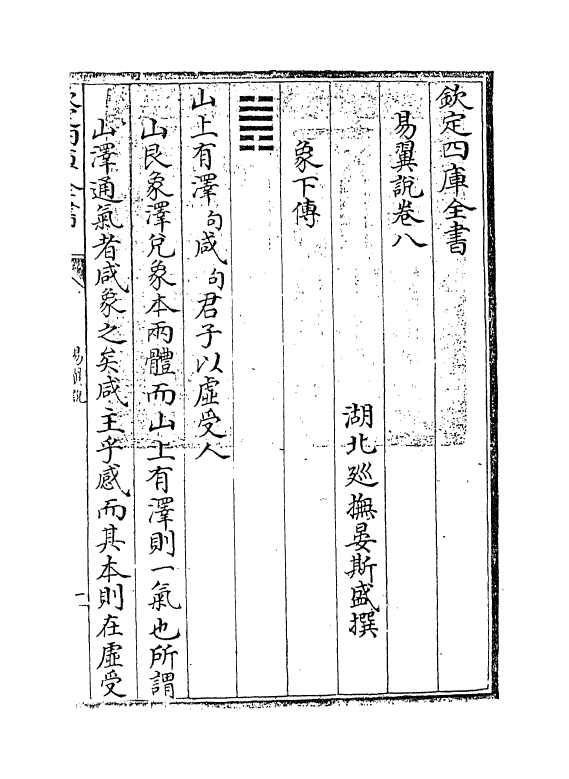 欽定四庫全書
易翼說卷八
湖北廵撫晏斯盛撰
象下傳
䷞
山上有澤句咸句君子以虛受人
山艮象澤兌象本兩體而山上有澤則一氣也所謂
山澤通氣者咸象之矣咸主乎感而其本則在虛受
易翼說